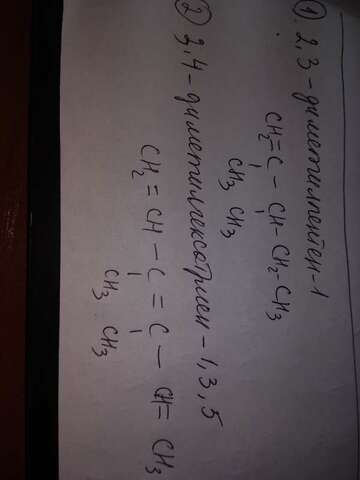 ① 2,3-диметилпентен-1
CH2=C - CH-CH2-CH3
CH3 CH3
② 3,4-диметилгексатриен-1,3,5
CH2=CH-C=C-CH=CH3
CH3 CH3